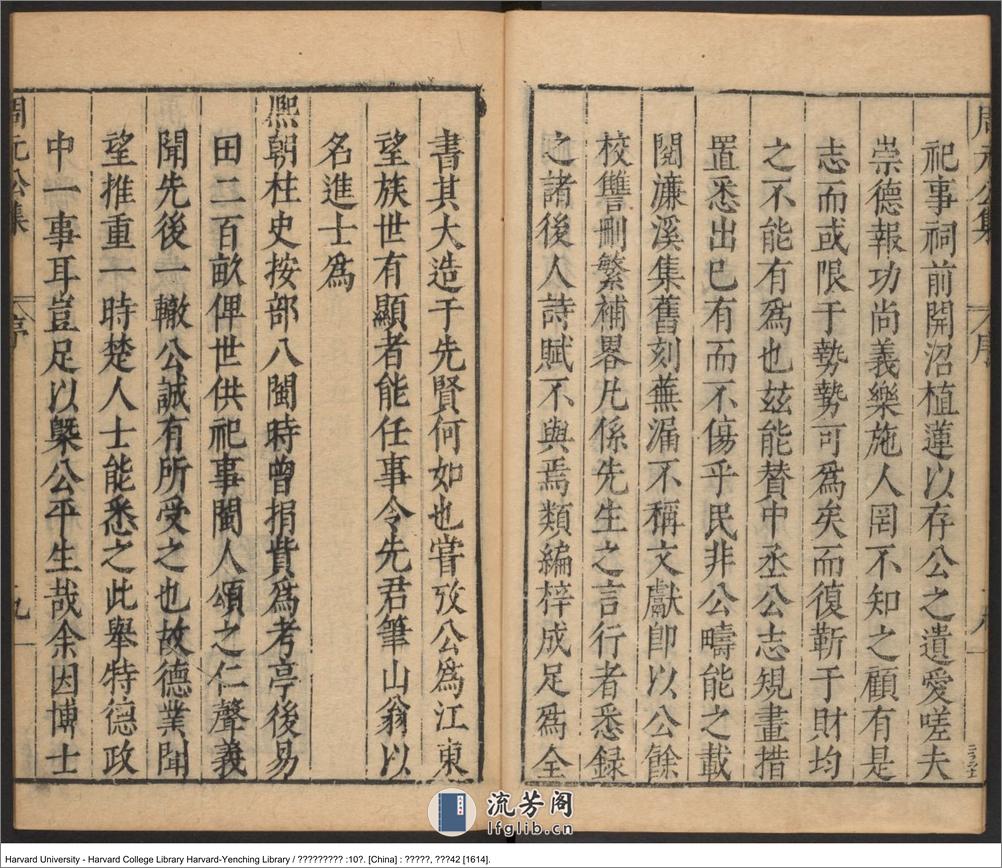 祀事祠前開沼植蓮以存公之遺愛嗟夫
崇德報功尚義樂施人罔不知之顧有是
志而或限于勢勢可爲矣而復靳于財均
之不能有爲也玆能賛中丞公志規畫措
置悉出已有而不傷乎民非公疇能之載
閱濂溪集舊刻蕪漏不稱文獻卽以公餘
校讐刪繁補畧凡係先生之言行者悉録
之諸後人詩賦不與焉類編梓成足爲全
書其大造于先賢何如也嘗攷公爲江東
望族世有顯者能任事令先君筆山翁以
名進士爲
熈朝柱史按部八閩時曾捐貲爲考亭後易
田二百畝俾世供祀事閩人頌之仁聲義
聞先後一轍公誠有所受之也故德業聞
望推重一時楚人士能悉之此舉特德政
中一事耳豈足以槩公平生哉余因博士
周元公集
序
九
流芳阁
lfglib.cn
Harvard University - Harvard College Library Harvard-Yenching Library / ????????? :10?. [China] : ?????, ???42 [1614].